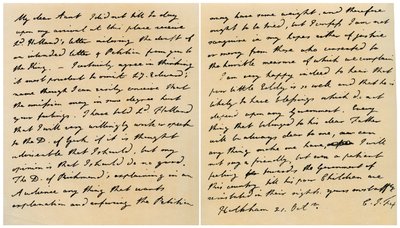 My dear Aunt I did not till to day
upon my arrival at this place receive
Ld Holland's letter enclosing the draft of
an intended letter & Petition from you to
the King — I entirely agree in thinking
it most prudent to omit Ld Edward's
name though I can easily conceive that
the omission may in some degree hurt
your feelings. I have told Ld Holland
that I will very willingly write or speak
to the D. of York if it is thought
adviseable that I should, but my
opinion is that I should do no good.
The D. of Richmond's explaining in an
Audience any thing that wants
explanation and enforcing the Petition
may have some weight, and therefore
ought to be tried, but I confess I am not
sanguine in my hopes either of justice
or mercy from those who consented to
the horrible measure of which we complain
I am very happy indeed to hear that
poor little Eddy is so well and that he is
likely to have blessings which do not
depend upon any Government. Every
thing that belonged to his dear Father
will be always dear to me, nor can
any thing make me have
not say a friendly, but even a patient
feeling towards the Government of
this country till his poor Children are
reinstated in their rights. yours most affly
Holkham 21. Oct.
C. J. Fox